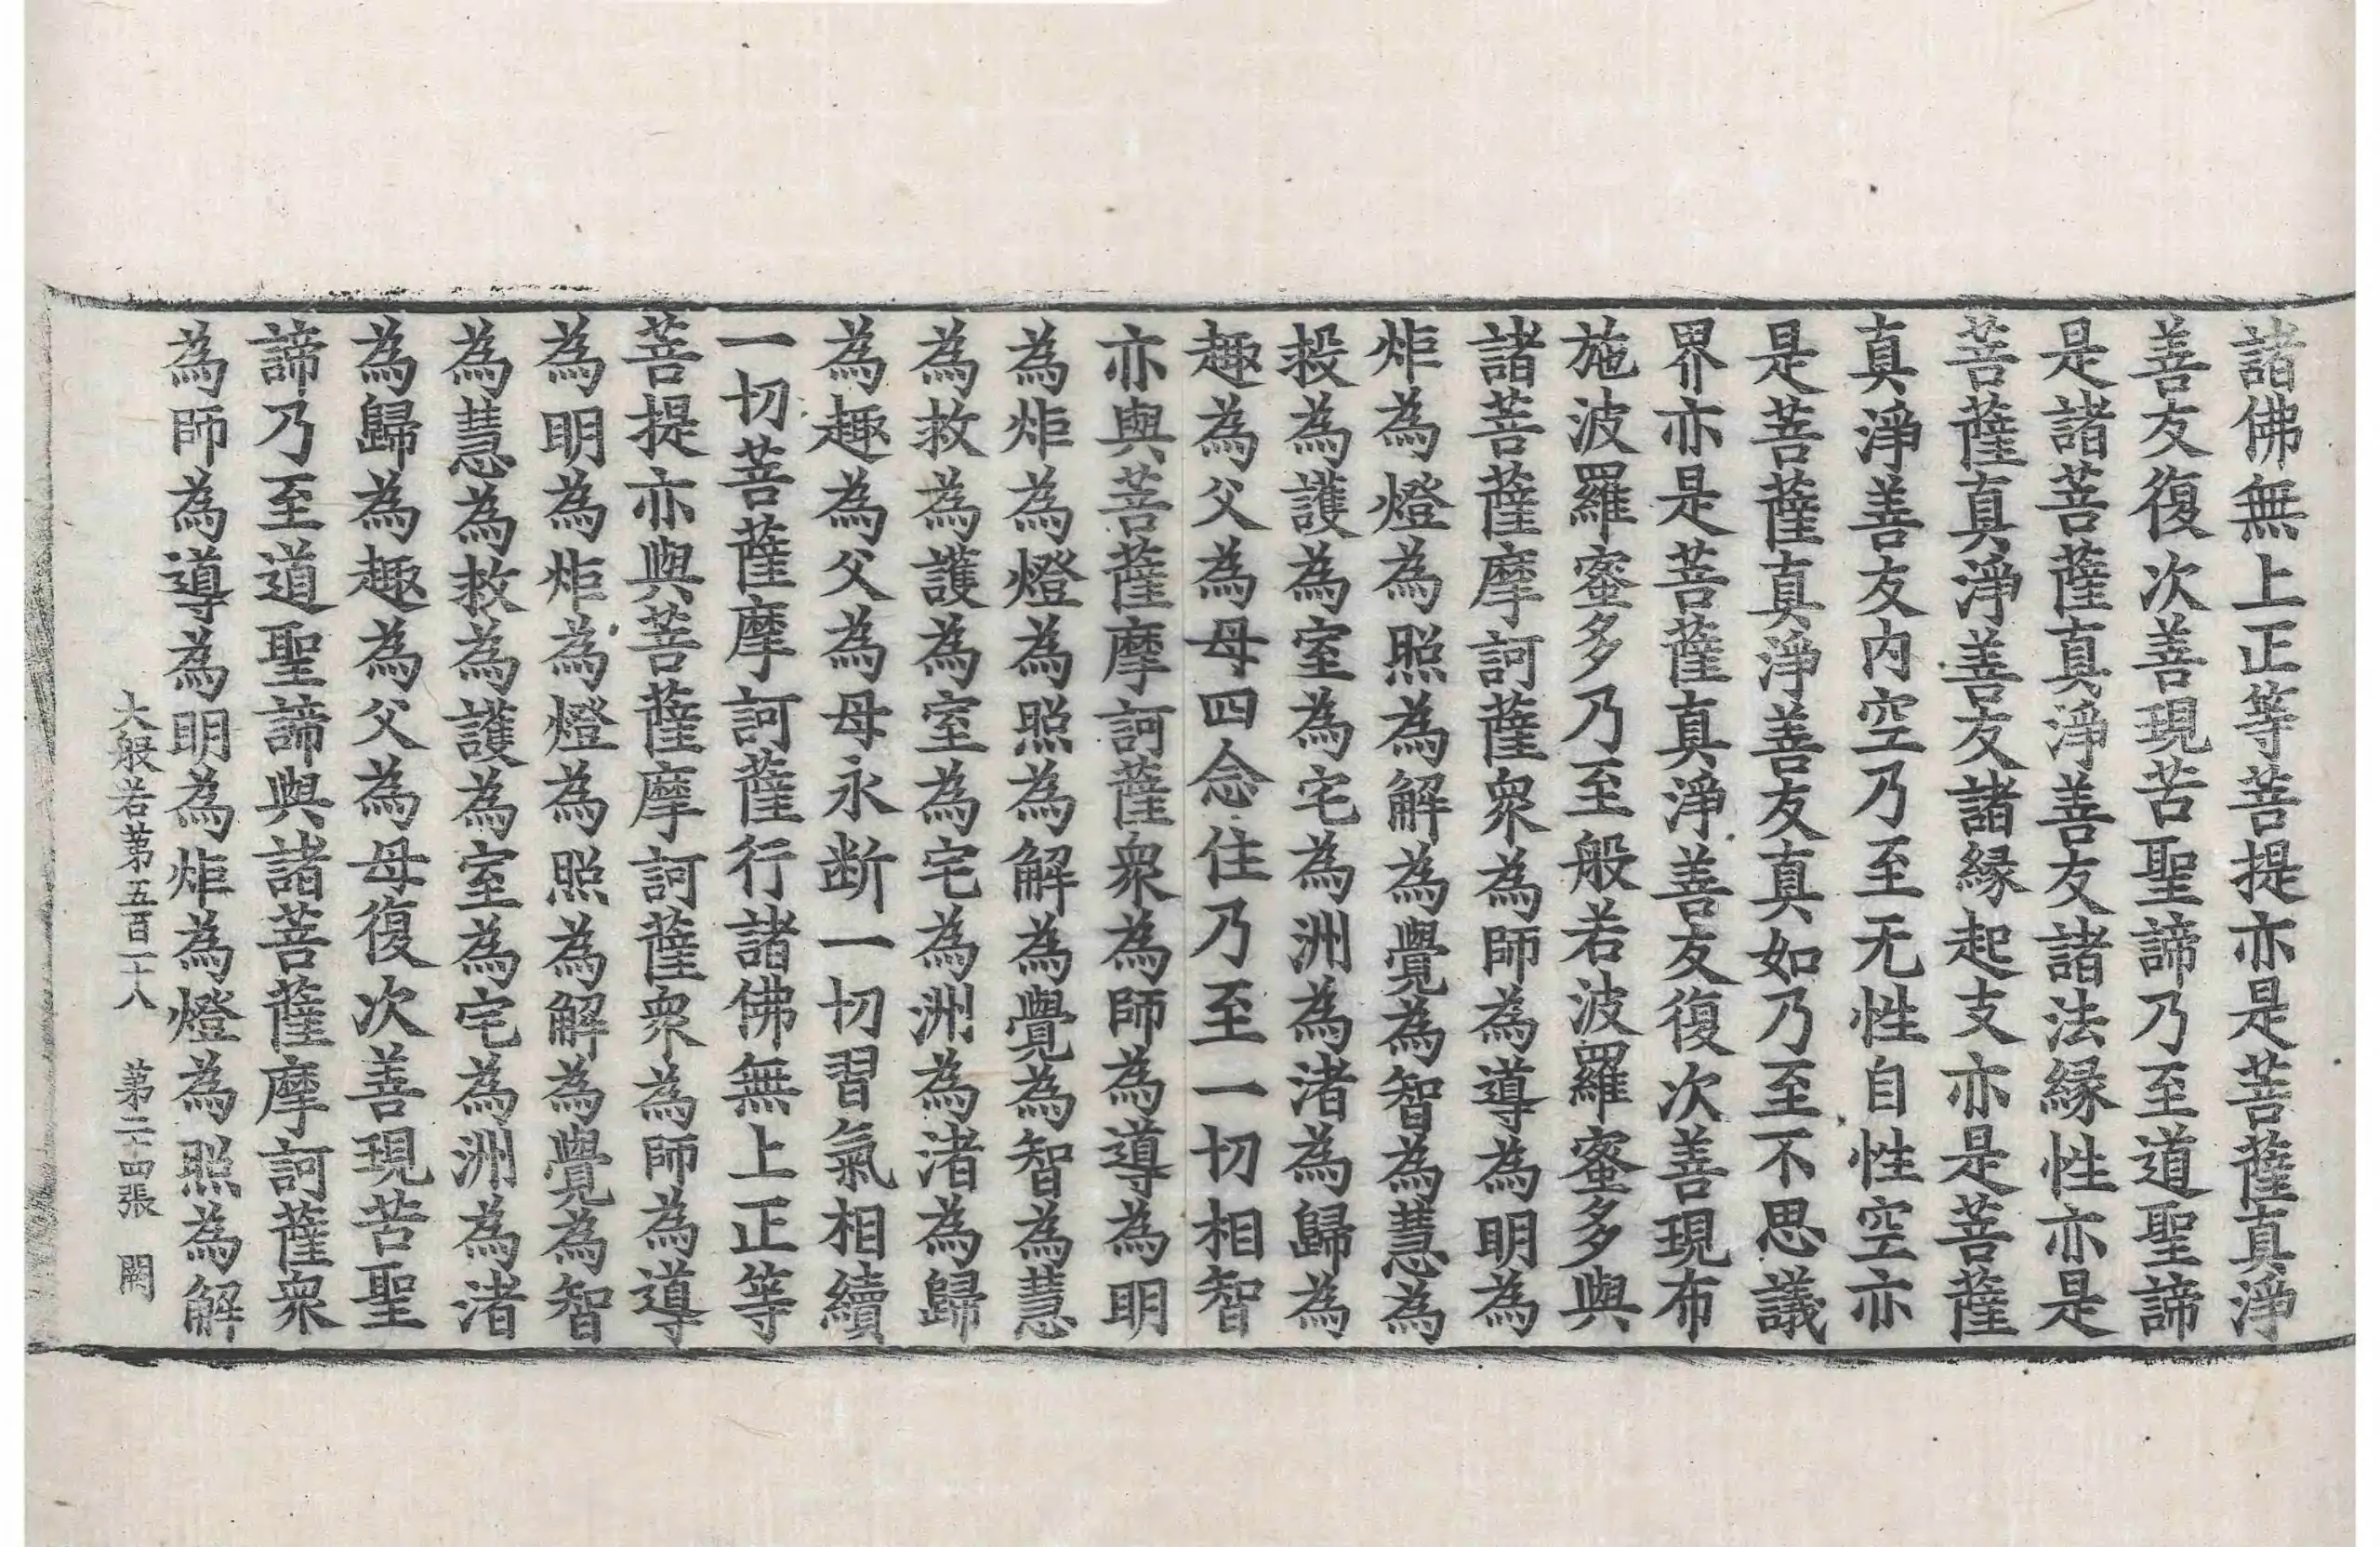 諸佛無上正等菩提亦是菩薩真淨
善友復次善現苦聖諦乃至道聖諦
是諸菩薩真淨善友諸法緣性亦是
菩薩真淨善友諸緣起支亦是菩薩
真淨善友內空乃至无性自性空亦
是菩薩真淨善友真如乃至不思議
界亦是菩薩真淨善友復次善現布
施波羅蜜多乃至般若波羅蜜多與
諸菩薩摩訶薩衆為師為導為明為
炬為燈為照為解為覺為智為慧為
投為護為室為宅為洲為渚為歸為
趣為父為母四念住乃至一切相智
亦與菩薩摩訶薩衆為師為導為明
為炬為燈為照為解為覺為智為慧
為救為護為室為宅為洲為渚為歸
為趣為父為母永断一切習氣相續
一切菩薩摩訶薩行諸佛無上正等
菩提亦與菩薩摩訶薩衆為師為導
為明為炬為燈為照為解為覺為智
為慧為救為護為室為宅為洲為渚
為歸為趣為父為母復次善現苦聖
諦乃至道聖諦與諸菩薩摩訶薩衆
為師為導為明為炬為燈為照為解
大般若第五百二十八 第二十四張 闕